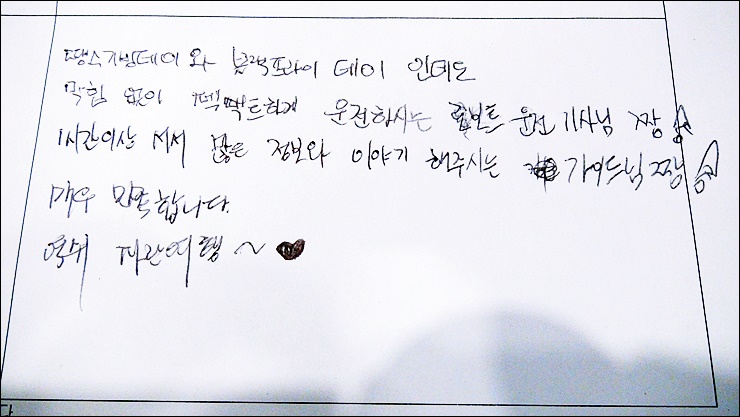 땡스기빙데이와 블랙프라이데이 인데도
막힘 없이 퍽팩트하게 운전하시는 로보트 운전 기사님 짱
1시간이상 서서 많은 정보와 이야기 해주시는 가이드님 짱
매우 만족합니다.
역쉬 파란여행 ~ ♥